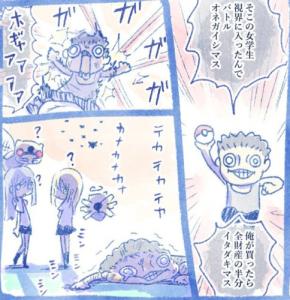 そこの女学生
視界に入ったんで
バトル
オネガイシマス
俺が買ったら
全財産の半分
イタダキマス
ガガガガ
ホギャアアアア
テカテカテカ
カナカナカナ
？
？
？
？